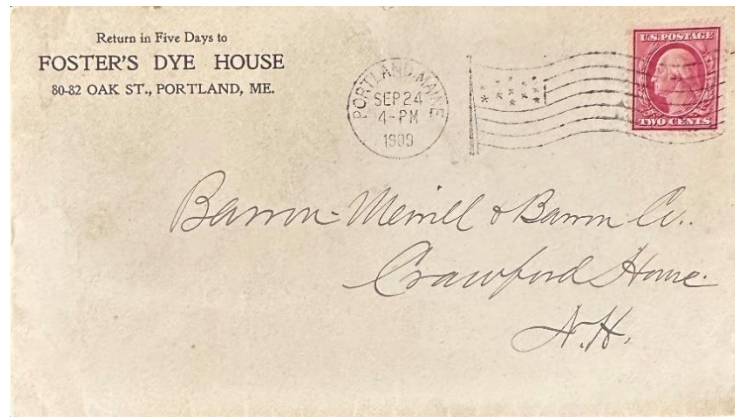 Return in Five Days to
FOSTER'S DYE HOUSE
80-82 OAK ST., PORTLAND, ME.
PORTLAND, MAINE
SEP 24
4-PM
1909
U.S. POSTAGE
TWO CENTS
Barron-Merrill & Barron Co.
Crawford House
N.H.